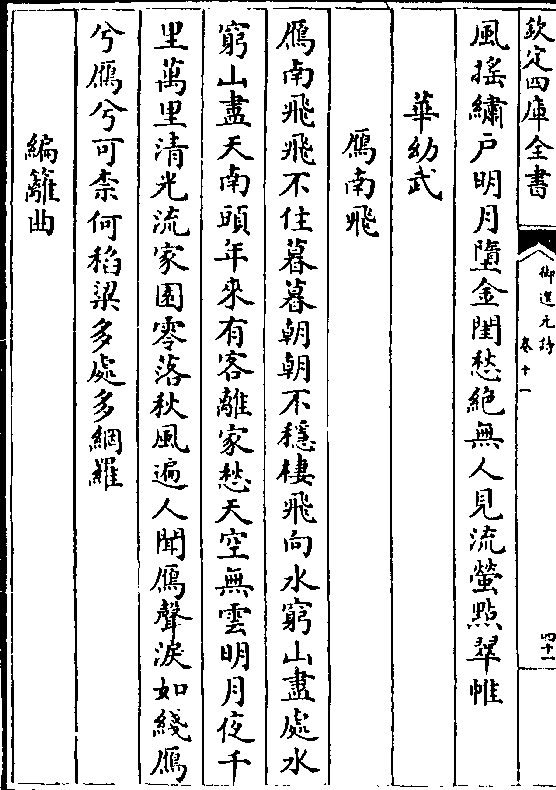 欽定四庫全書
御選元詩
卷十一
四十一
風搖繡户明月墮金閨愁絶無人見流螢點翠帷
華幼武
鴈南飛
鴈南飛飛不住暮暮朝朝不穩棲飛向水窮山盡處水
窮山盡天南頭年來有客離家愁天空無雲明月夜千
里萬里清光流家園零落秋風遍人聞鴈聲淚如綫鴈
兮鴈兮可柰何稻粱多處多網羅
編籬曲